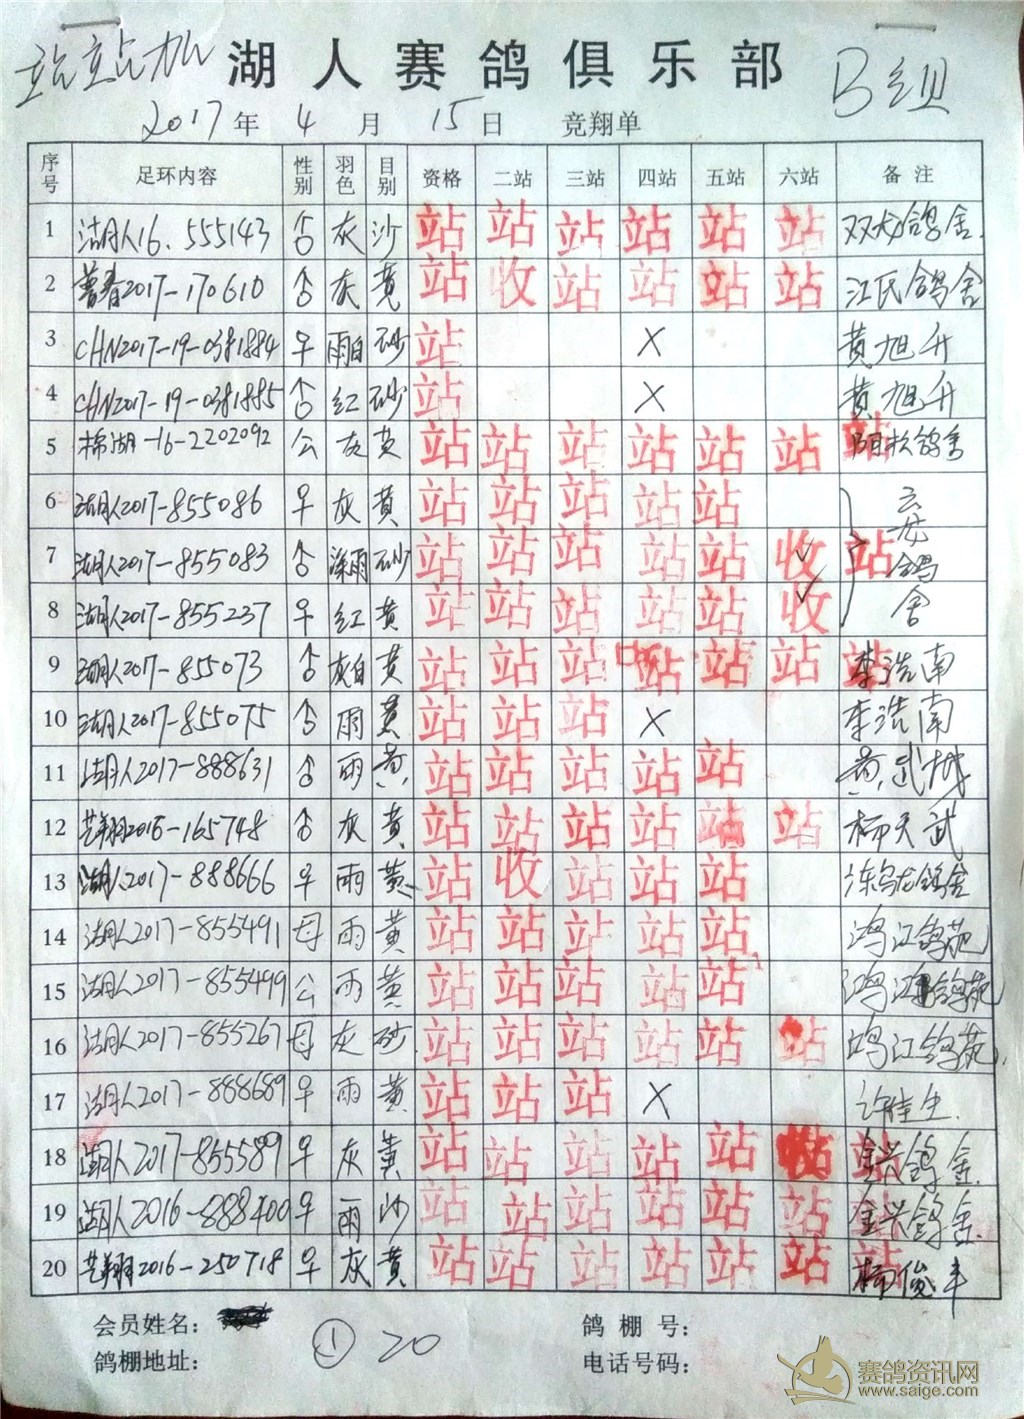 站站加 湖人赛鸽俱乐部 B组
2017年 4月 15日 竞翔单
序号 足环内容 性别 羽色 目别 资格 二站 三站 四站 五站 六站 备注
1 湖人16.555143 ♂ 灰 沙 站 站 站 站 站 站 双龙鸽舍.
2 普春2017-170610 ♂ 灰 黄 站 收 站 站 站 站 江氏鸽舍
3 CHN2017-19-0381884 ♀ 雨白 砂 站 X 黄旭升
4 CHN2017-19-0381885 ♂ 红 砂 站 X 黄旭升
5 棉湖-16-2202092 公 灰 黄 站 站 站 站 站 站 站 鸽舍
6 湖人2017-855086 ♀ 灰 黄 站 站 站 站 站
7 湖人2017-855083 ♂ 深雨 砂 站 站 站 站 站 收 站 鸽舍
8 湖人2017-855237 ♀ 红 黄 站 站 站 站 站 收
9 湖人2017-855073 ♂ 灰白 黄 站 站 站 站 站 站 站 李浩南
10 湖人2017-855075 ♂ 雨 黄 站 站 站 X 李浩南
11 湖人2017-888631 ♂ 雨 黄 站 站 站 站 站 黄武城
12 艺翔2016-165748 ♂ 灰 黄 站 站 站 站 站 站 杨天武
13 湖人2017-888666 ♀ 雨 黄 站 收 站 站 站 乌龙鸽舍
14 湖人2017-855491 母 雨 黄 站 站 站 站 站 鸿江鸽苑
15 湖人2017-855499 公 雨 黄 站 站 站 站 站 鸿江鸽苑
16 湖人2017-855267 母 灰 砂 站 站 站 站 站 站 鸿江鸽苑.
17 湖人2017-888689 ♀ 雨 黄 站 站 站 X 许佳生.
18 湖人2017-855589 ♀ 灰 黄 站 站 站 站 站 收 站 金兴鸽舍.
19 湖人2016-888400 ♀ 雨 沙 站 站 站 站 站 站 站 金兴鸽舍.
20 艺翔2016-250718 ♀ 灰 黄 站 站 站 站 站 站 站 杨俊丰
会员姓名： 鸽棚号：
鸽棚地址： ① 20 电话号码：
赛鸽资讯网
www.saige.com